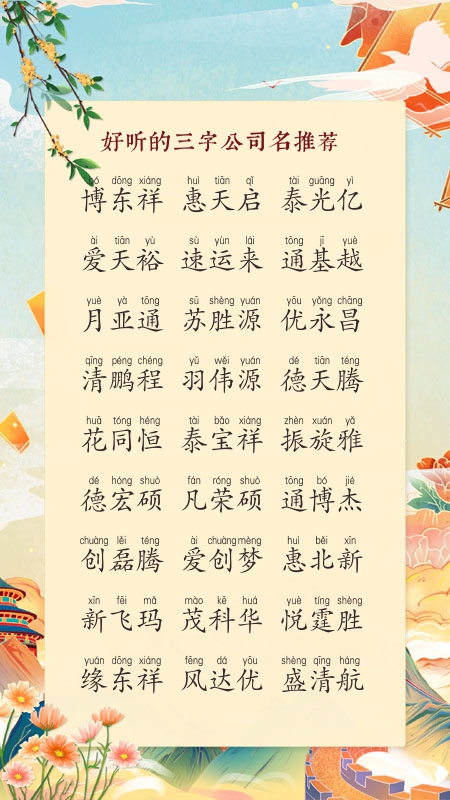 好听的三字公司名推荐
bó dōng xiáng huì tiān qǐ tài guāng yì
博东祥 惠天启 泰光亿
ài tiān yù sù yùn lái tōng jī yuè
爱天裕 速运来 通基越
yuè yà tōng sū shèng yuán yōu yǒng chāng
月亚通 苏胜源 优永昌
qīng péng chéng yǔ wěi yuán dé tiān téng
清鹏程 羽伟源 德天腾
huā tóng héng tài bǎo xiáng zhèn xuán yǎ
花同恒 泰宝祥 振旋雅
dé hóng shuò fán róng shuò tōng bó jié
德宏硕 凡荣硕 通博杰
chuàng lěi téng ài chuàng mèng huì běi xīn
创磊腾 爱创梦 惠北新
xīn fēi mǎ mào kē huá yuè tíng shèng
新飞玛 茂科华 悦霆胜
yuán dōng xiáng fēng dá yōu shèng qīng háng
缘东祥 风达优 盛清航